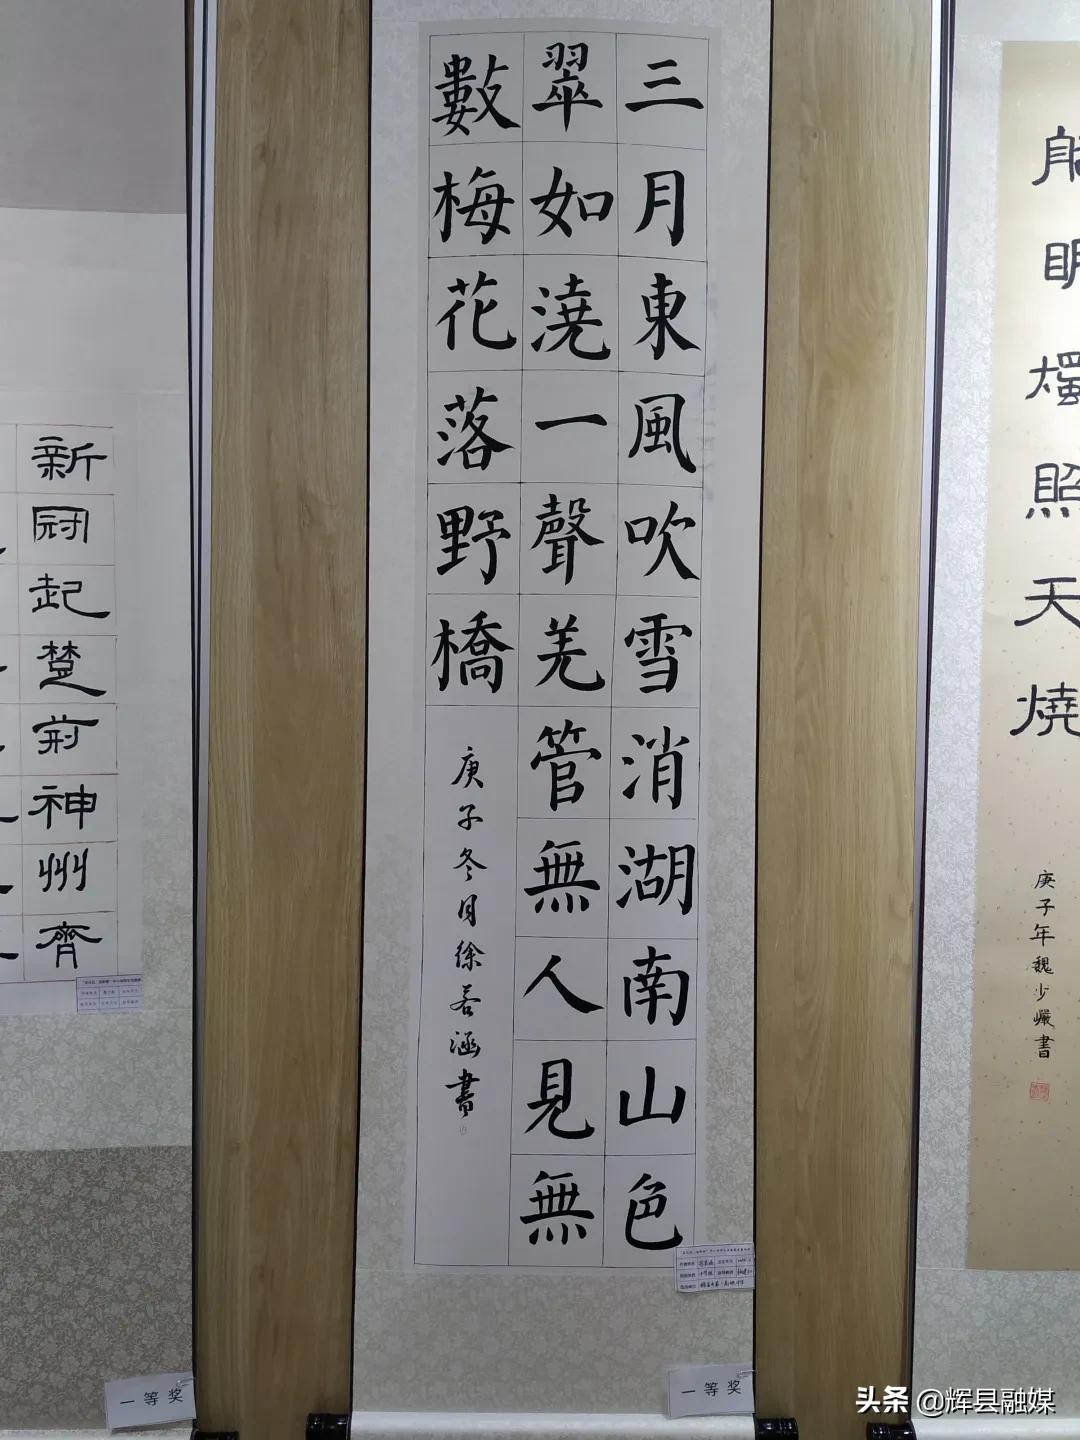 三月東風吹雪消湖南山色
翠如澆一聲羌管無人見無
數梅花落野橋
庚子冬月徐若涵書
明燭照天燒
庚子年魏少巖書
新冠起楚前神州齊
一等奖
一等奖
头条 @辉县融媒